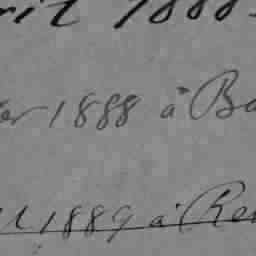 ril 1888
er 1888 à Ba
il 1889 à Ren